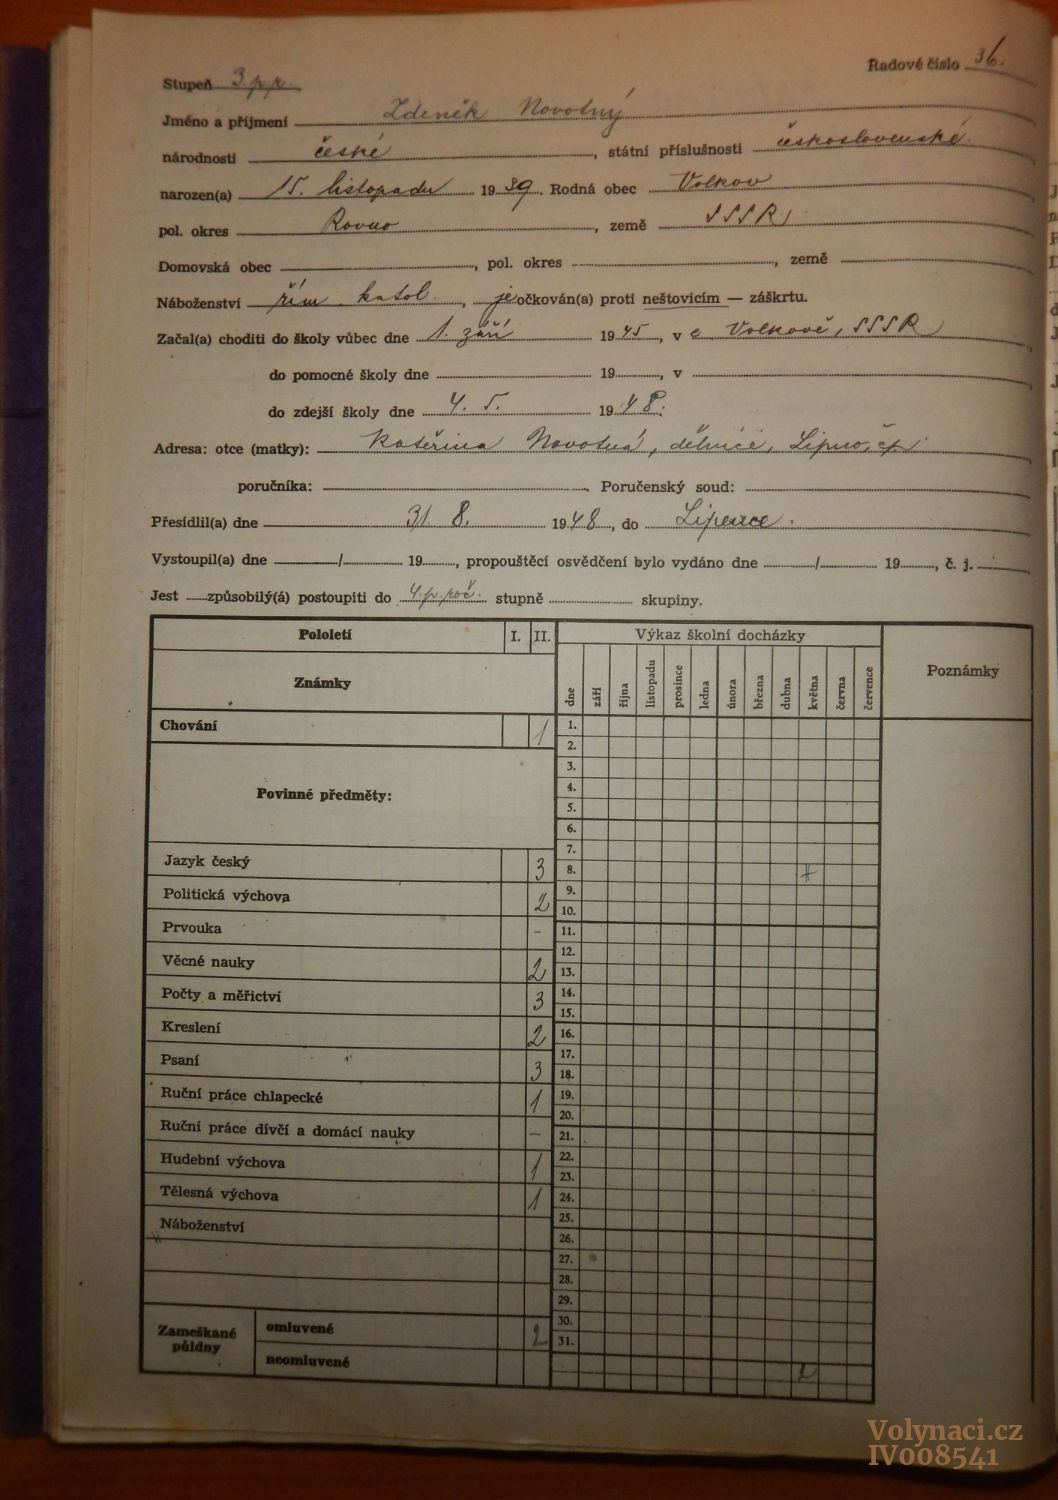 Stupeň 3.p.r. Řadové číslo 36.
Jméno a příjmení Zdeněk Novotný
národnosti české, státní příslušnosti československé.
narozen(a) 15. listopadu 1939. Rodná obec Volkov
pol. okres Rovno, země SSSR
Domovská obec , pol. okres , země
Náboženství řím. katol., je očkován(a) proti neštovicím — záškrtu.
Začal(a) choditi do školy vůbec dne 1. září 1945, v e Volkově, SSSR
do pomocné školy dne 19 , v
do zdejší školy dne 4. 5. 1948.
Adresa: otce (matky): Kateřina Novotná, dělnice, Lipno, čp.
poručníka: Poručenský soud:
Přesídlil(a) dne 31. 8. 1948, do Lipence.
Vystoupil(a) dne / 19 , propouštěcí osvědčení bylo vydáno dne / 19 , č. j.
Jest způsobilý(á) postoupiti do 4.p.roč. stupně skupiny.
Pololetí I. II. Výkaz školní docházky
Známky dne září října listopadu prosince ledna února března dubna května června července Poznámky
Chování 1
Povinné předměty:
Jazyk český 3
Politická výchova 2
Prvouka -
Věcné nauky 2
Počty a měřictví 3
Kreslení 2
Psaní 3
Ruční práce chlapecké 1
Ruční práce dívčí a domácí nauky —
Hudební výchova 1
Tělesná výchova 1
Náboženství
Zameškané půldny
omluvené 2
neomluvené
1.
2.
3.
4.
5.
6.
7.
8. +
9.
10.
11.
12.
13.
14.
15.
16.
17.
18.
19.
20.
21.
22.
23.
24.
25.
26.
27.
28.
29.
30.
31.
2
Volynaci.cz
IV008541